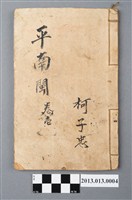 平南閩
柯子忠
2013.013.0004